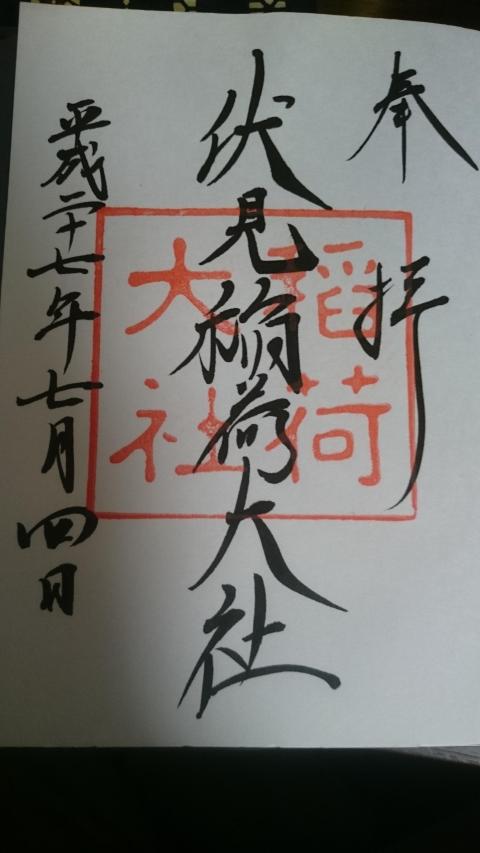 奉拝
伏見稲荷大社
平成二十七年七月四日
稲荷
大社